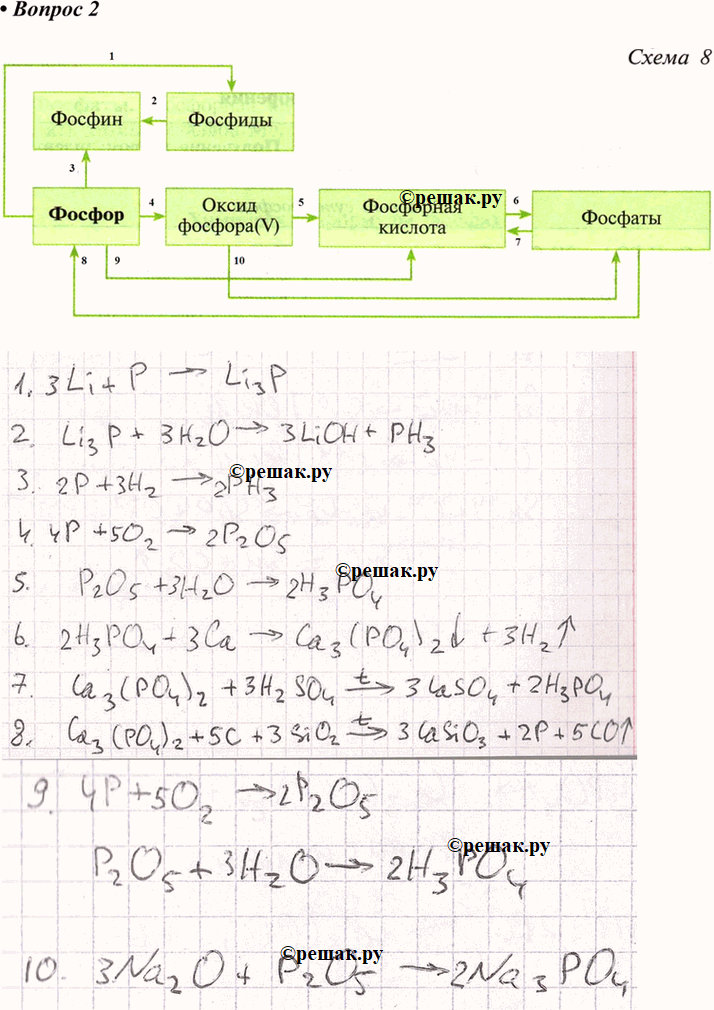 • Вопрос 2
Схема 8
1
Фосфин
2
Фосфиды
3
Фосфор
4
Оксид
фосфора(V)
5
©решак.ру
Фосфорная
кислота
6
7
Фосфаты
8
9
10
1. 3Li + P → Li₃P
2. Li₃P + 3H₂O → 3LiOH + PH₃
©решак.ру
3. 2P + 3H₂ → 2PH₃
4. 4P + 5O₂ → 2P₂O₅
©решак.ру
5. P₂O₅ + 3H₂O → 2H₃PO₄
6. 2H₃PO₄ + 3Ca → Ca₃(PO₄)₂↓ + 3H₂↑
7. Ca₃(PO₄)₂ + 3H₂SO₄ →t 3CaSO₄ + 2H₃PO₄
8. Ca₃(PO₄)₂ + 5C + 3SiO₂ →t 3CaSiO₃ + 2P + 5CO↑
9. 4P + 5O₂ → 2P₂O₅
©решак.ру
P₂O₅ + 3H₂O → 2H₃PO₄
©решак.ру
10. 3Na₂O + P₂O₅ → 2Na₃PO₄